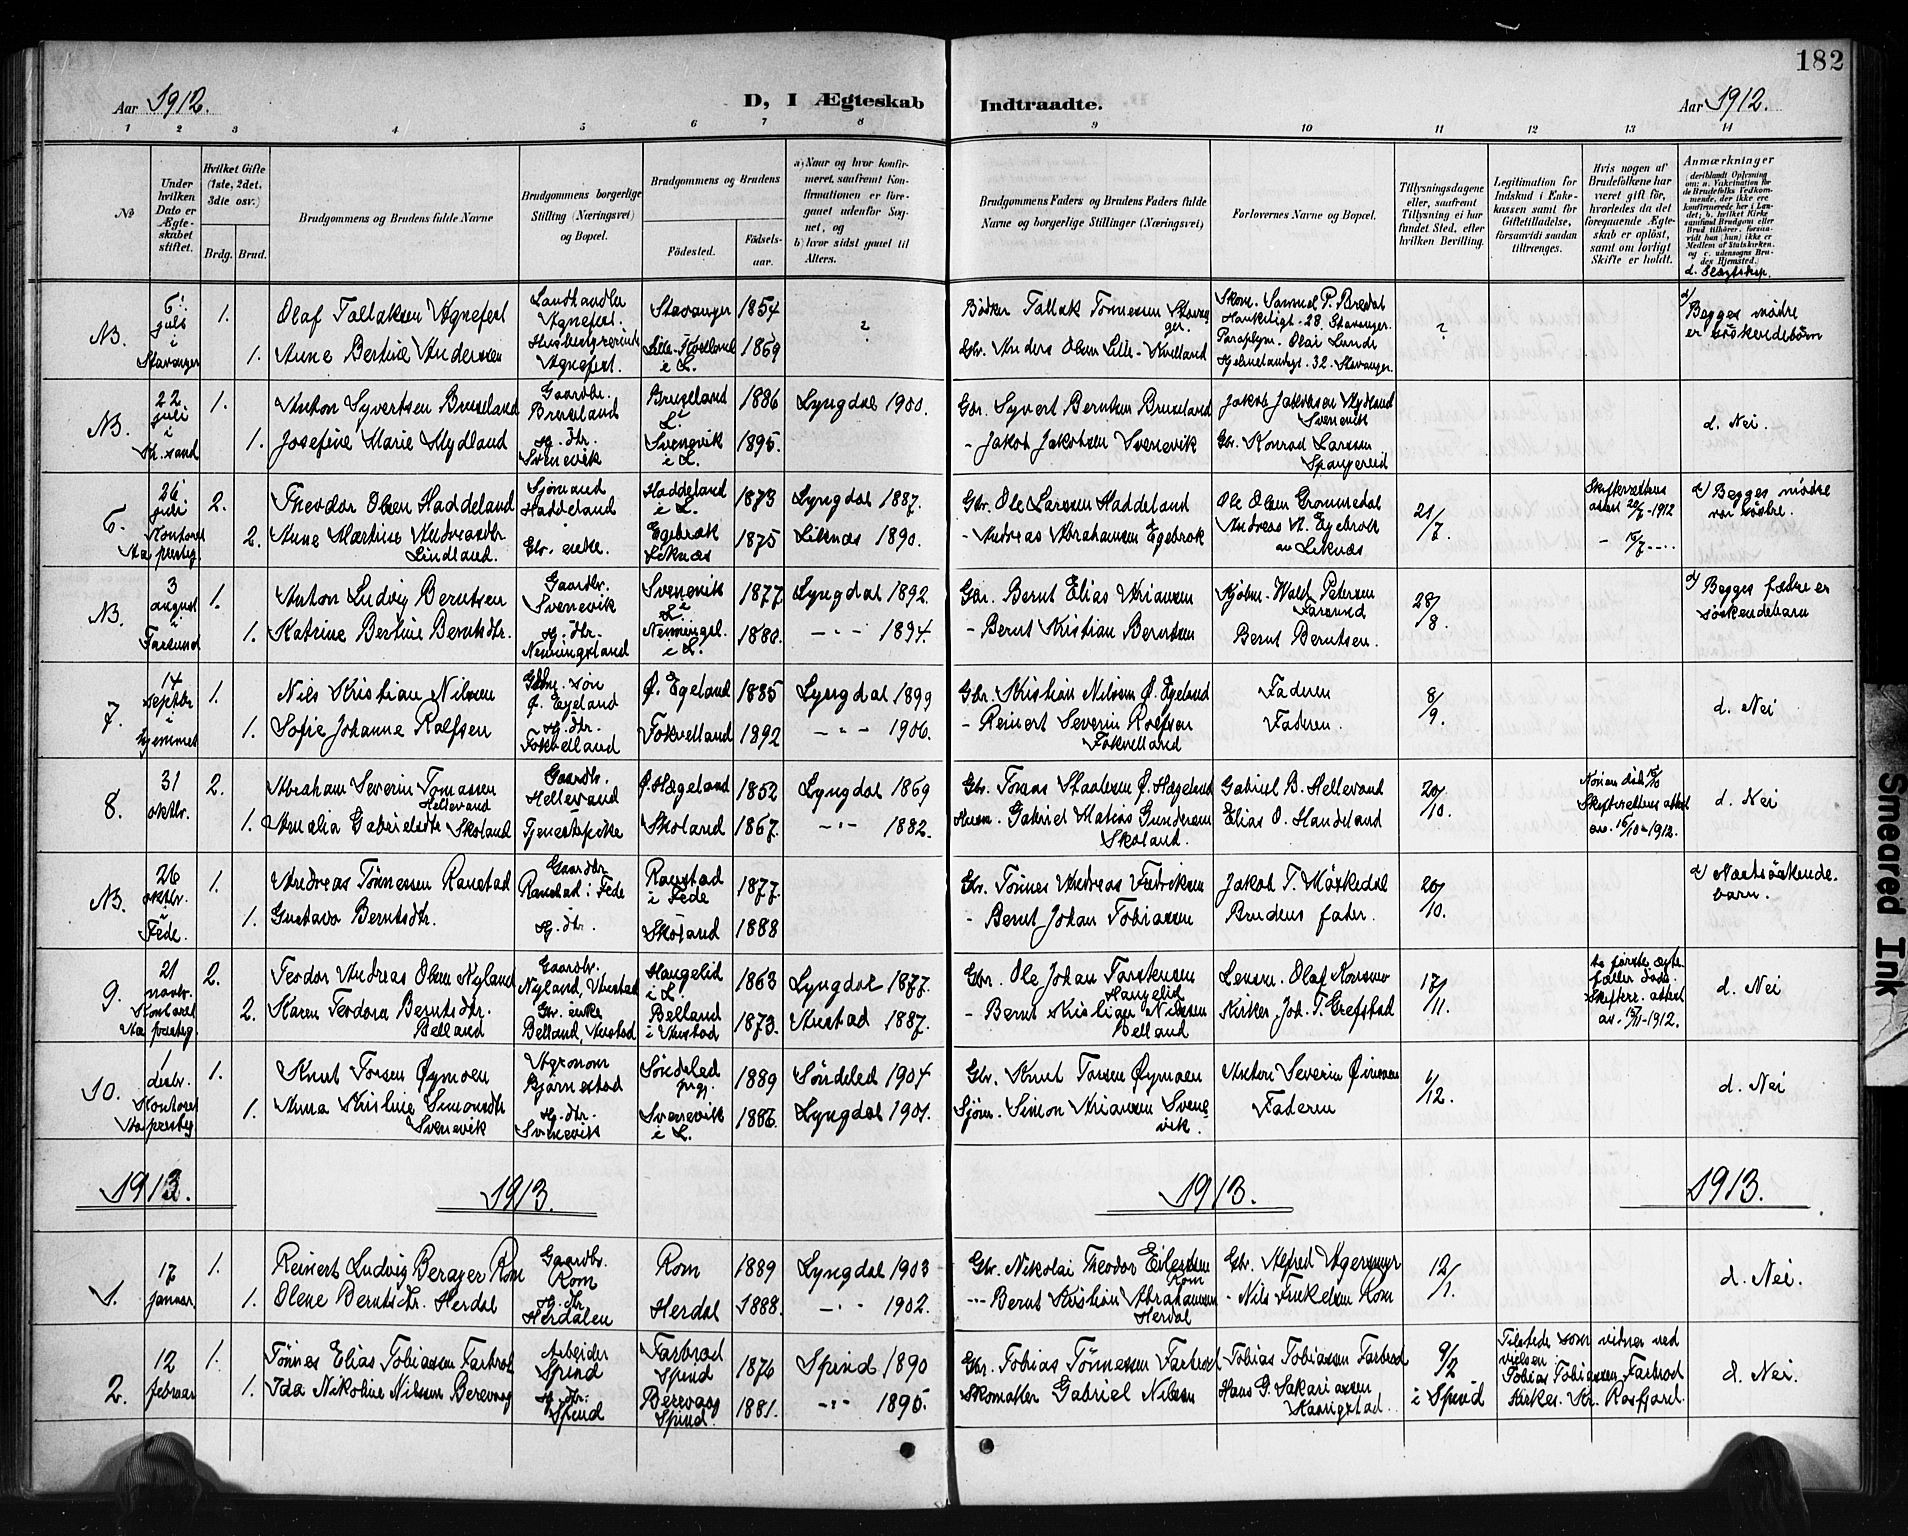 182
Aar 1912.
D, I Ægteskab Indtraadte.
Aar 1912.
1 2 3 4 5 6 7 8 9 10 11 12 13 14
№
Under hvilken Dato er Ægteskabet stiftet.
Hvilket Gifte (1ste, 2det, 3die osv.)
Brdg. Brud.
Brudgommens og Brudens fulde Navne
Brudgommens borgerlige Stilling (Næringsvei) og Bopæl.
Brudgommens og Brudens
Fødested.
Fødsels-aar.
a) Naar og hvor konfirmeret, saafremt Konfirmationen er foregaaet udenfor Sognet, og
b) hvor sidst gaaet til Alters.
Brudgommens Faders og Brudens Faders fulde Navne og borgerlige Stillinger (Næringsvei)
Forlovernes Navne og Bopæl.
Tillysningsdagene eller, saafremt Tillysning ei har fundet Sted, efter hvilken Bevilling.
Legitimation for Indskud i Enkekassen samt for Giftetilladelse, forsaavidt saadan tiltrænges.
Hvis nogen af Brudefolkene har været gift før, hvorledes da det foregaaende Ægteskab er opløst, samt om lovligt Skifte er holdt.
Anmærkninger
d. Slægtskap
NB. 6. juli i Stavanger 1. Olaf Tallaksen Agnefest Landhandler Agnefest. Stavanger 1854 ? Bødker Tallak Tønnesen Stavanger. Skom. Samuel P. Bredal 28. Stavanger. ? d/ Begges mødre er søskendebørn
1. Anne Bertine Andersen Husbestyrerinde Agnefest. Lille-Kvelland i L. 1869 Gbr. Anders Olsen Lille-Kvelland Olai Lunde 32. Stavanger.
NB. 22. juli i Kr.sand 1. Anton Syvertsen Bruseland Gaardbr. Bruseland Bruseland i L. 1886 Lyngdal 1900. Gbr. Syvert Berntsen Bruseland Jakob Jakobsen Mydland Svenevik d. Nei.
1. Josefine Marie Mydland Hg. dtr. Svenevik Svenevik i L. 1895. - Jakob Jakobsen Svenevik Gbr. Konrad Larsen Spangereid
6. 26. juli Kontoret Aa prestg. 2. Theodor Olsen Haddeland Sjømand Haddeland Haddeland i L. 1873 Lyngdal 1887. Gbr. Ole Larsen Haddeland Ole Olsen Grommedal 21/7. Skifterettens attest 20/6-1912 d/ Begges mødre var søstre.
2. Anne Martine Andreasdtr. Lindland. Gbr. enke. Egebrok Liknæs 1875 Liknæs 1890. - Andreas Abrahamsen Egebrok Andreas A. Egebrok av Liknæs
NB. 3 august i Farsund 1. Anton Ludvig Berntsen Gaardbr. Svenevik Svenevik i L. 1877 Lyngdal 1892. Gbr. Bernt Elias Ariansen Kjøbm. Wald. Petersen Farsund 28/8. d/ Begges fædre er søskendebarn
1. Katrine Bertine Berntsdtr. Hg. dtr. Nemingsland i L. 1880. -"- 1894. - Bernt Kristian Berntsen Bernt Berntsen.
7. 14 septbr. i hjemmet 1. Nils Kristian Nilsen Gbr. søn Ø. Egeland Ø. Egeland 1885 Lyngdal 1899 Gbr. Kristian Nilsen Ø. Egeland Faderen 8/9. d. Nei
1. Sofie Johanne Rolfsen Hg. dtr. Fokvelland Fokvelland 1892 -"- 1906. - Reinert Severin Rolfsen Fokvelland Faderen.
8. 31 oktbr. 2. Abraham Severin Tomassen Hellevand Gaardbr. Hellevand Ø. Hægeland 1852 Lyngdal 1869 Gbr. Tomas Staalesen Ø. Hægeland Gabriel B. Hellevand 20/10. Konen død Skifterettens attest av. 16/10-1912. d. Nei
1. Amalia Gabrielsdtr. Skoland Tjenestepike Skoland 1867 -"- 1882. Husm. Gabriel Matias Gundersen Skoland. Elias O. Handeland
NB. 26 oktbr. i Fede. 1. Andreas Tønnessen Ranestad Gaardbr. Ranestad i Fede Ranestad i Fede 1877. Gbr. Tønnes Andreas Fredriksen Jakob T. Møskedal 20/10. d/ Næstsøskendebarn.
1. Gustava Berntsdtr. Hg. dtr. Skoland 1888 - Bernt Johan Tobiassen Brudens fader.
9. 21 novbr. Kontoret Aa prestg. 2. Teodor Andreas Olsen Nyland Gaardbr. Nyland, Austad Haugelid i L. 1863 Lyngdal 1877. Gbr. Ole Johan Torstensen Haugelid Lensm. Olaf Konsmo 17/11. to første ægtefæller døde. Skifter. attest av. 15/11-1912. d. Nei
2. Karen Teodora Berntsdtr. Belland Gbr. enke Belland, Austad Belland i Austad 1873. Austad 1887. - Bernt Kristian Nilsen Belland Kirker Joh. T. Grefstad
10. 1 desbr. Kontoret Aa prestg 1. Knut Torsen Øymoen Agronom Bjørnestad Søndeled prgj. 1889 Søndeled 1904 Gbr. Knut Torsen Øymoen Anton Severin 1/12. d. Nei
1. Anna Kristine Simonsdtr. Svenevik Hg. dtr. Svenevik Svenevik i L. 1886. Lyngdal 1901. Sjøm. Simon Ariansen Svenevik. Faderen
1913. 1913. 1913. 1913.
1. 17 januar 1. Reinert Ludvig Berager Rom Gaardbr. Rom Rom 1889 Lyngdal 1903 Gbr. Nikolai Theodor Eilertsen Rom Gbr. Alfred Agersmyr 12/1. d. Nei.
1. Olene Berntsdtr. Herdal Hg. dtr. Herdalen Herdal 1888. -"- 1902. -"- Bernt Kristian Abrahamsen Herdal - Nils Finkelsen Rom
2. 12 februar 1. Tønnes Elias Tobiassen Farbrot Arbeider Spind Farbrod Spind 1876 Spind 1890 Gbr. Tobias Tønnessen Farbrod Tobias Tobiassen Farbrod 9/2 i Spind Tilstede som vidner ved vielsen Tobias Tobiassen Farbrod Kirkes. Kr. Rosfjord. d. Nei.
1. Ida Nikoline Nilsen Berevaag Hg. dtr. Spind Berevaag Spind. 1881. -"- 1895. Skomaker Gabriel Nilsen Hans G. Sakariassen
Smeared Ink